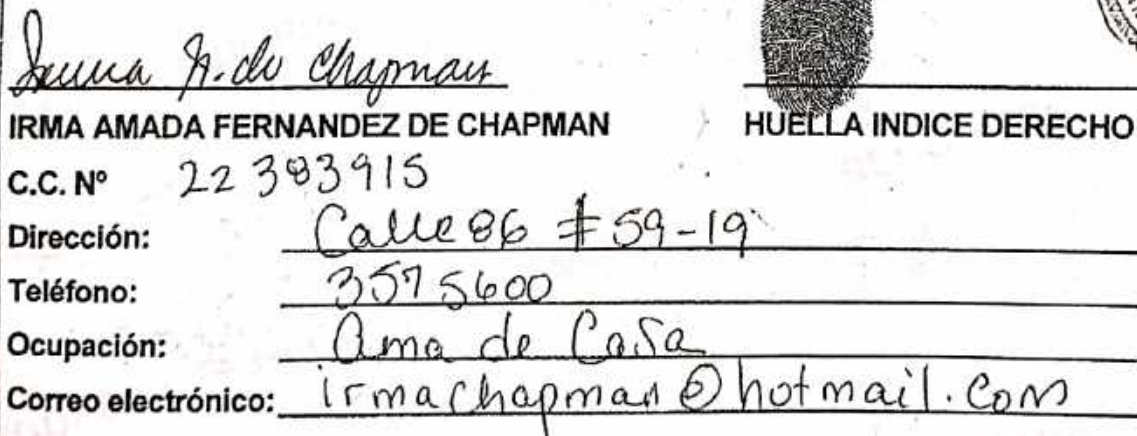 Irma F. de Chapman
IRMA AMADA FERNANDEZ DE CHAPMAN
HUELLA INDICE DERECHO
C.C. Nº 22 383915
Dirección: Calle 86 # 59-19
Teléfono: 3575600
Ocupación: Ama de Casa
Correo electrónico: irmachapman@hotmail.com